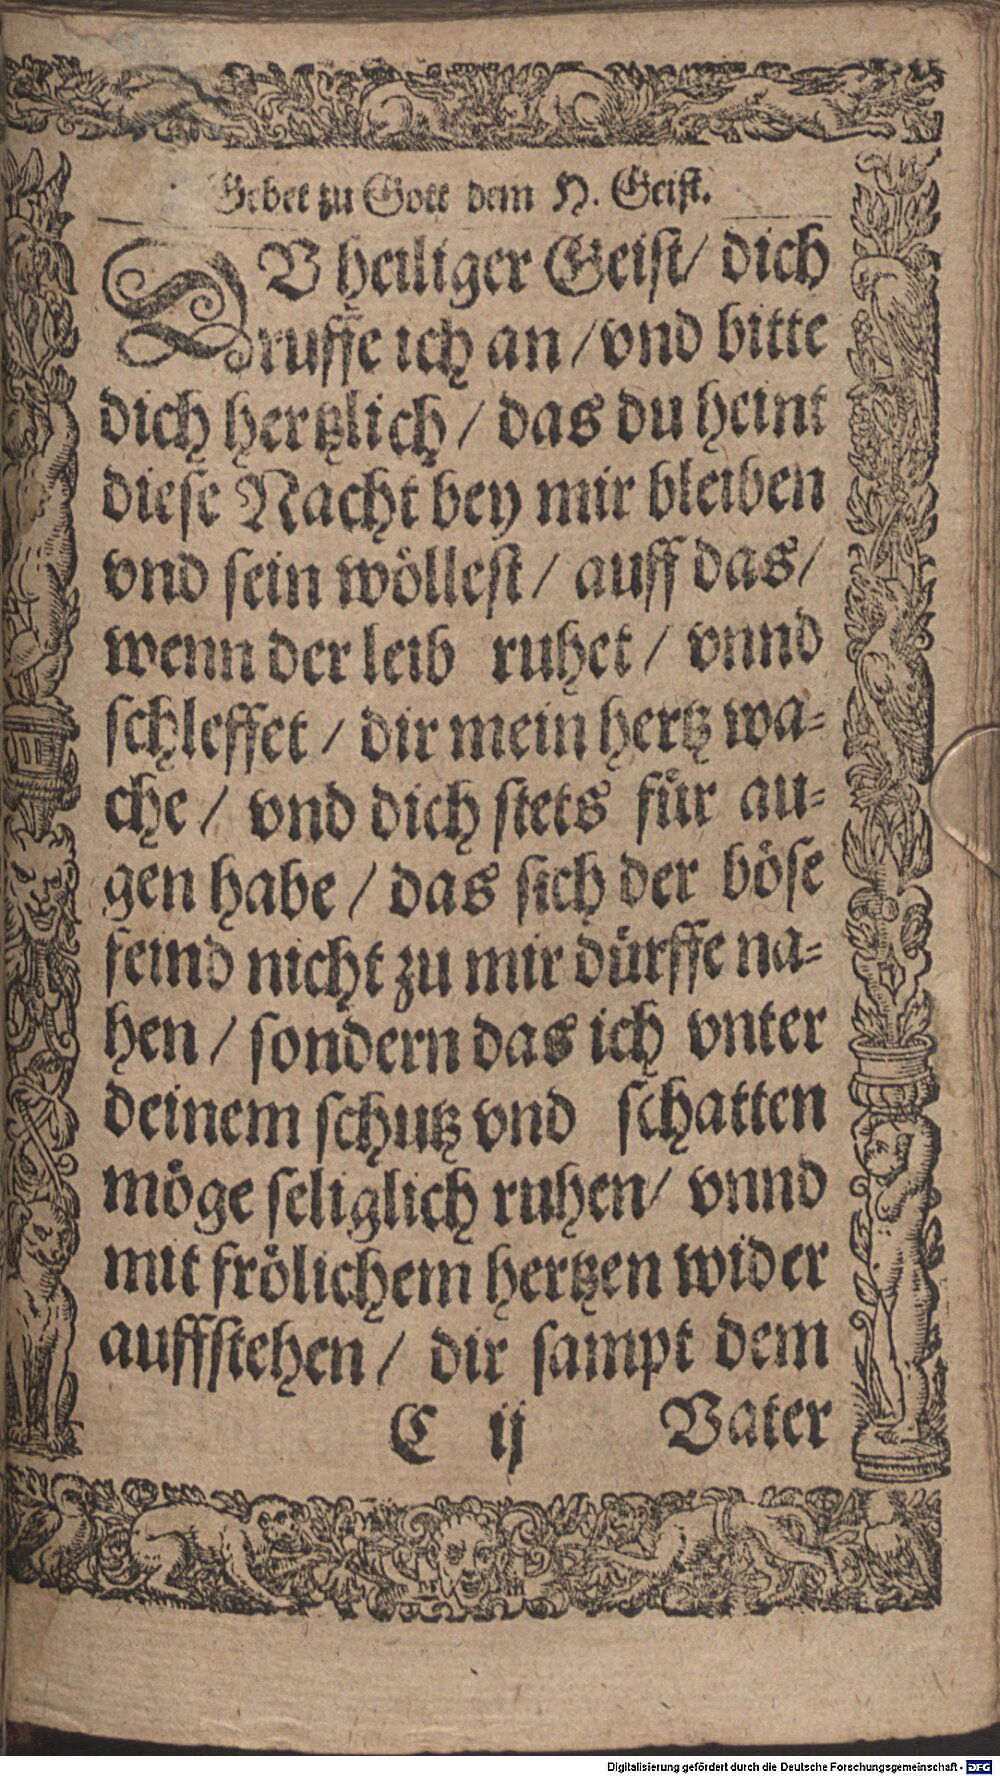 Gebet zu Gott dem H. Geist.
DV heiliger Geist/ dich
ruffe ich an /vnd bitte
dich hertzlich / das du heint
diese Nacht bey mir bleiben
vnd sein wöllest / auff das/
wenn der leib ruhet / vnnd
schleffet / dir mein hertz wa-
che / vnd dich stets für au-
gen habe / das sich der böse
feind nicht zu mir dürffe na-
hen / sondern das ich vnter
deinem schutz vnd schatten
möge seliglich ruhen/ vnnd
mit frölichem hertzen wider
auffstehen / dir sampt dem
C ij Vater
Digitalisierung gefördert durch die Deutsche Forschungsgemeinschaft - DFG